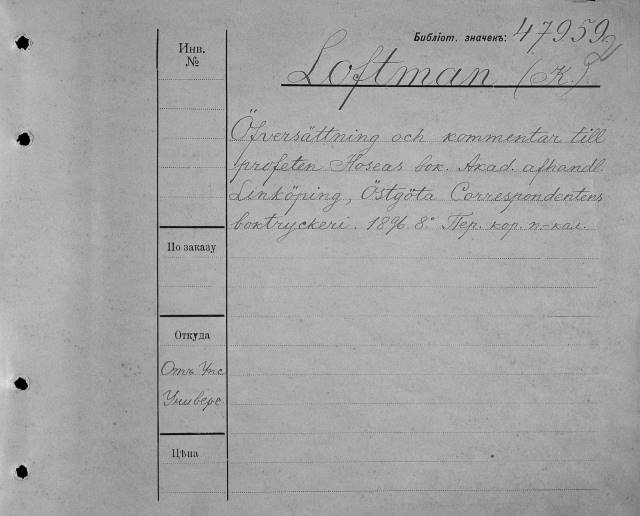 Библіот. значекъ: 47959
2
Инв.
№
Loftman (K.)
Öfversättning och kommentar till
profeten Hoseas bok. Akad. afhandl.
Linköping, Östgöta Correspondentens
boktryckeri. 1896. 8.° Пер. кор. п.-кал.
По заказу
Откуда
Отъ Упс
Универс
Цѣна